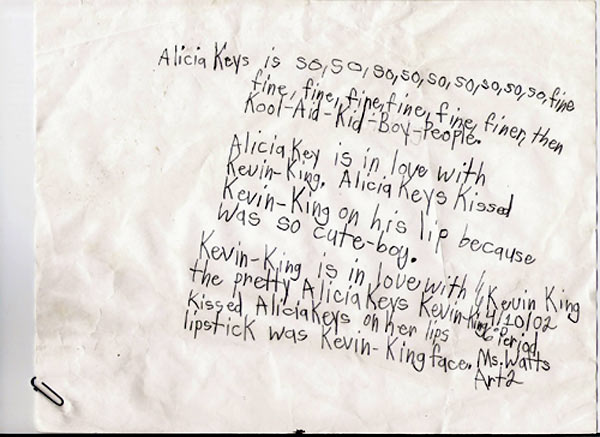 Alicia Keys is so, so, so, so, so, so, so, so, so, fine
fine, fine, fine, fine, fine, finer, then
Kool-Aid-Kid-Boy-People.
Alicia Key is in love with
Kevin-King. Alicia Keys Kissed
Kevin-King on his lip because
was so cute-boy.
Kevin-King is in love with
the pretty Alicia Keys Kevin-King
Kissed Alicia Keys on her lips
lipstick was Kevin-King face.
Kevin King
4/10/02
6° Period
Ms. Watts
Art 2